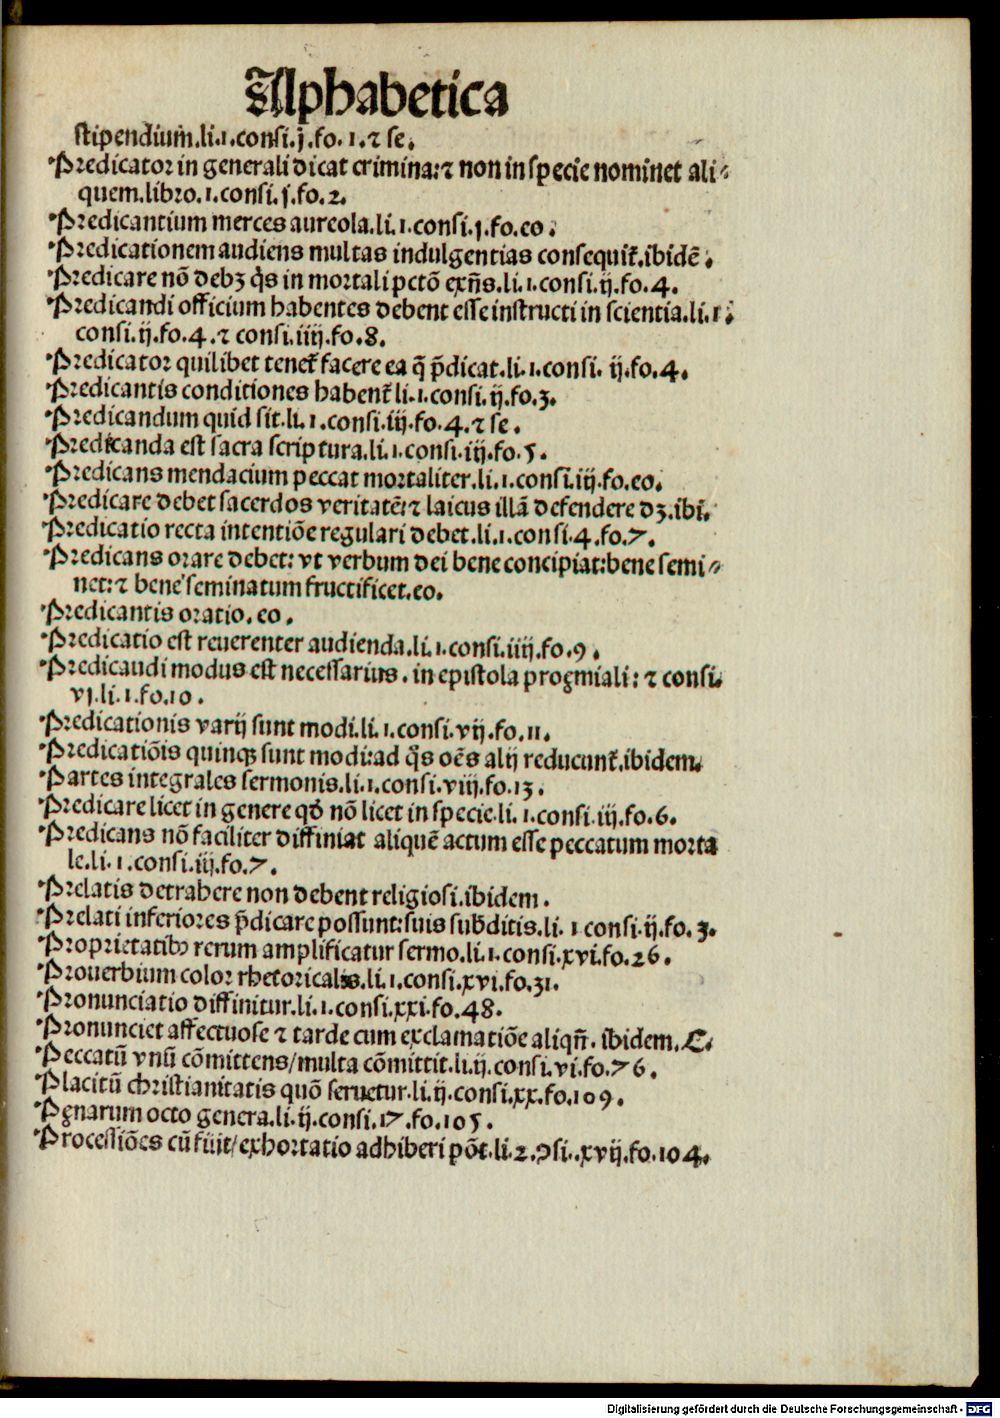 Alphabetica
stipendium.li.1.consi.j.fo.1.⁊ se.
Predicator in generali dicat crimina:⁊ non in specie nominet ali⸗
quem.libro.1.consi.j.fo.2.
Predicantium merces aureola.li.1.consi.j.fo.eo.
Predicationem audiens multas indulgentias consequit᷑.ibidē.
Predicare nō debꝫ q̄s in mortali pctō exn̄s.li.1.consi.ij.fo.4.
Predicandi officium habentes debent esse instructi in scientia.li.1.
consi.ij.fo.4.⁊ consi.iiij.fo.8.
Predicator quilibet tenet᷑ facere ea q̄ p̄dicat.li.1.consi.ij.fo.4.
Predicantis conditiones habent᷑ li.1.consi.ij.fo.3.
Predicandum quid sit.li.1.consi.iij.fo.4.⁊ se.
Predicanda est sacra scriptura.li.1.consi.iij.fo.5.
Predicans mendacium peccat mortaliter.li.1.consi.iij.fo.eo.
Predicare debet sacerdos veritatē:⁊ laicus illā defendere dꝫ.ibi.
Predicatio recta intentiōe regulari debet.li.1.consi.4.fo.7.
Predicans orare debet: vt verbum dei bene concipiat:bene semi⸗
net:⁊ bene seminatum fructificet.eo.
Predicantis oratio.eo.
Predicatio est reuerenter audienda.li.1.consi.iiij.fo.9.
Predicaudi modus est necessarius.in epistola progmiali:⁊ consi.
vj.li.1.fo.10.
Predicationis varij sunt modi.li.1.consi.vij.fo.11.
Predicatiōis quinqꝫ sunt modi:ad q̄s oēs alij reducunt᷑.ibidem.
Partes integrales sermonis.li.1.consi.viij.fo.13.
Predicare licet in genere qđ nō licet in specie.li.1.consi.iij.fo.6.
Predicans nō faciliter diffiniat aliquē actum esse peccatum morta
le.li.1.consi.iij.fo.7.
Prelatis detrahere non debent religiosi.ibidem.
Prelati inferiores p̄dicare possunt:suis subditis.li.1 consi.ij.fo.3.
Proprietatibꝫ rerum amplificatur sermo.li.1.consi.xvi.fo.26.
Prouerbium color rhetoricalis.li.1.consi.xvi.fo.31.
Pronunciatio diffinitur.li.1.consi.xxi.fo.48.
Pronunciet affectuose ⁊ tarde cum exclamatiōe aliqn̄.ibidem.C.
Peccatū vnū cōmittens/multa cōmittit.li.ij.consi.vi.fo.76.
Placitū christianitatis quō seruetur.li.ij.consi.xx.fo.109.
Penarum octo genera.li.ij.consi.17.fo.105.
Processiōes cū fiūt/exhortatio adhiberi pōt.li.2.ꝯsi.xvij.fo.104.
Digitalisierung gefördert durch die Deutsche Forschungsgemeinschaft - DFG